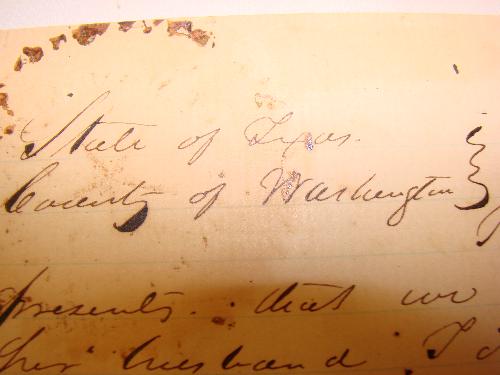 State of Texas.
County of Washington
presents. that we
her husband